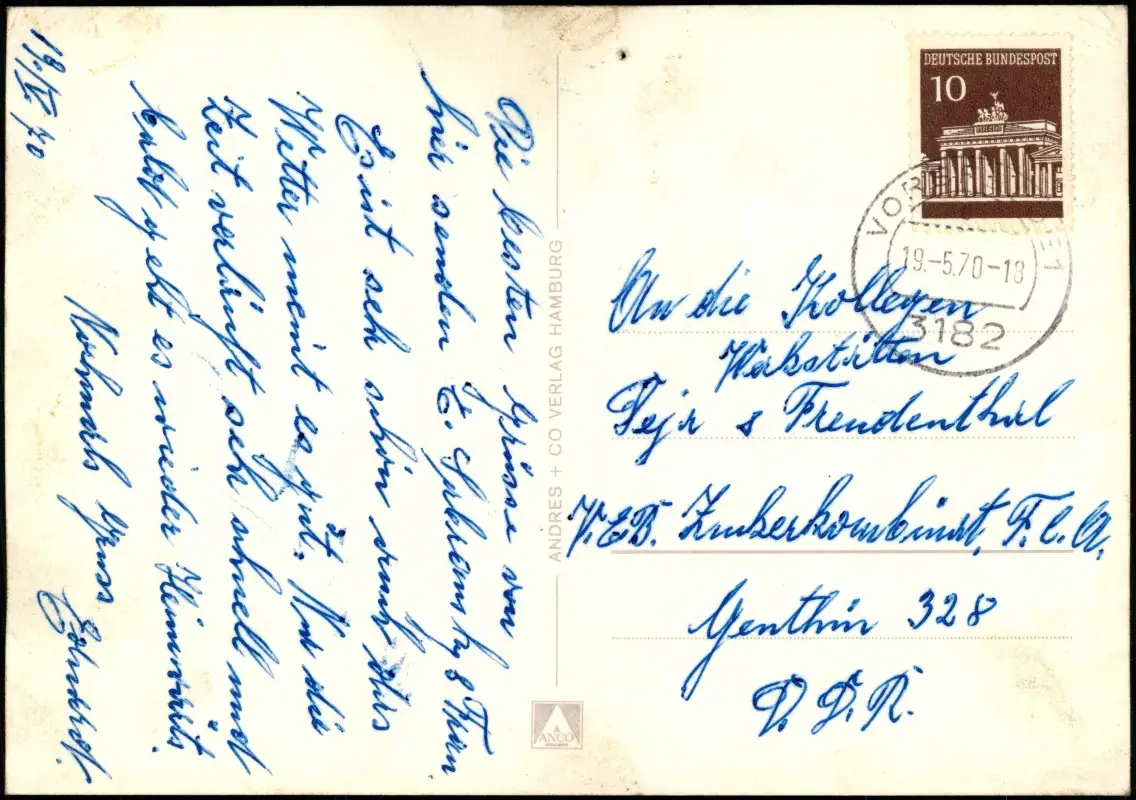 19./V. 70
Die besten Grüsse von
hier senden E. & Frau
Es ist sehr schön auch das
Wetter meint es gut. Nur die
Zeit verläuft sehr schnell und
bald geht es wieder Heimwärts.
Nochmals Gruss
Eduard.
ANDRES + CO VERLAG HAMBURG
ANCO
DEUTSCHE BUNDESPOST
10
19.-5.70-18
3182
An die Kollegen
Werkstätten
Fejr & Freudenthal
V.E.B. Zukerkombinat, F. C. A.
Genthin 328
D. D. R.